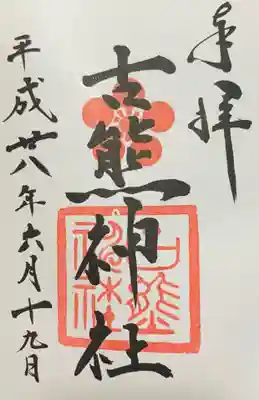 奉拝
古熊神社
平成廿八年六月十九日